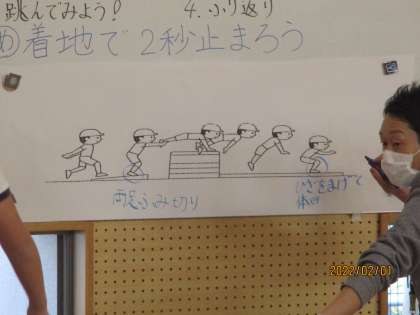 跳んでみよう!
4.ふり返り
め着地で2秒止まろう
両足ふみ切り
ひざをまげて
2022/02/01